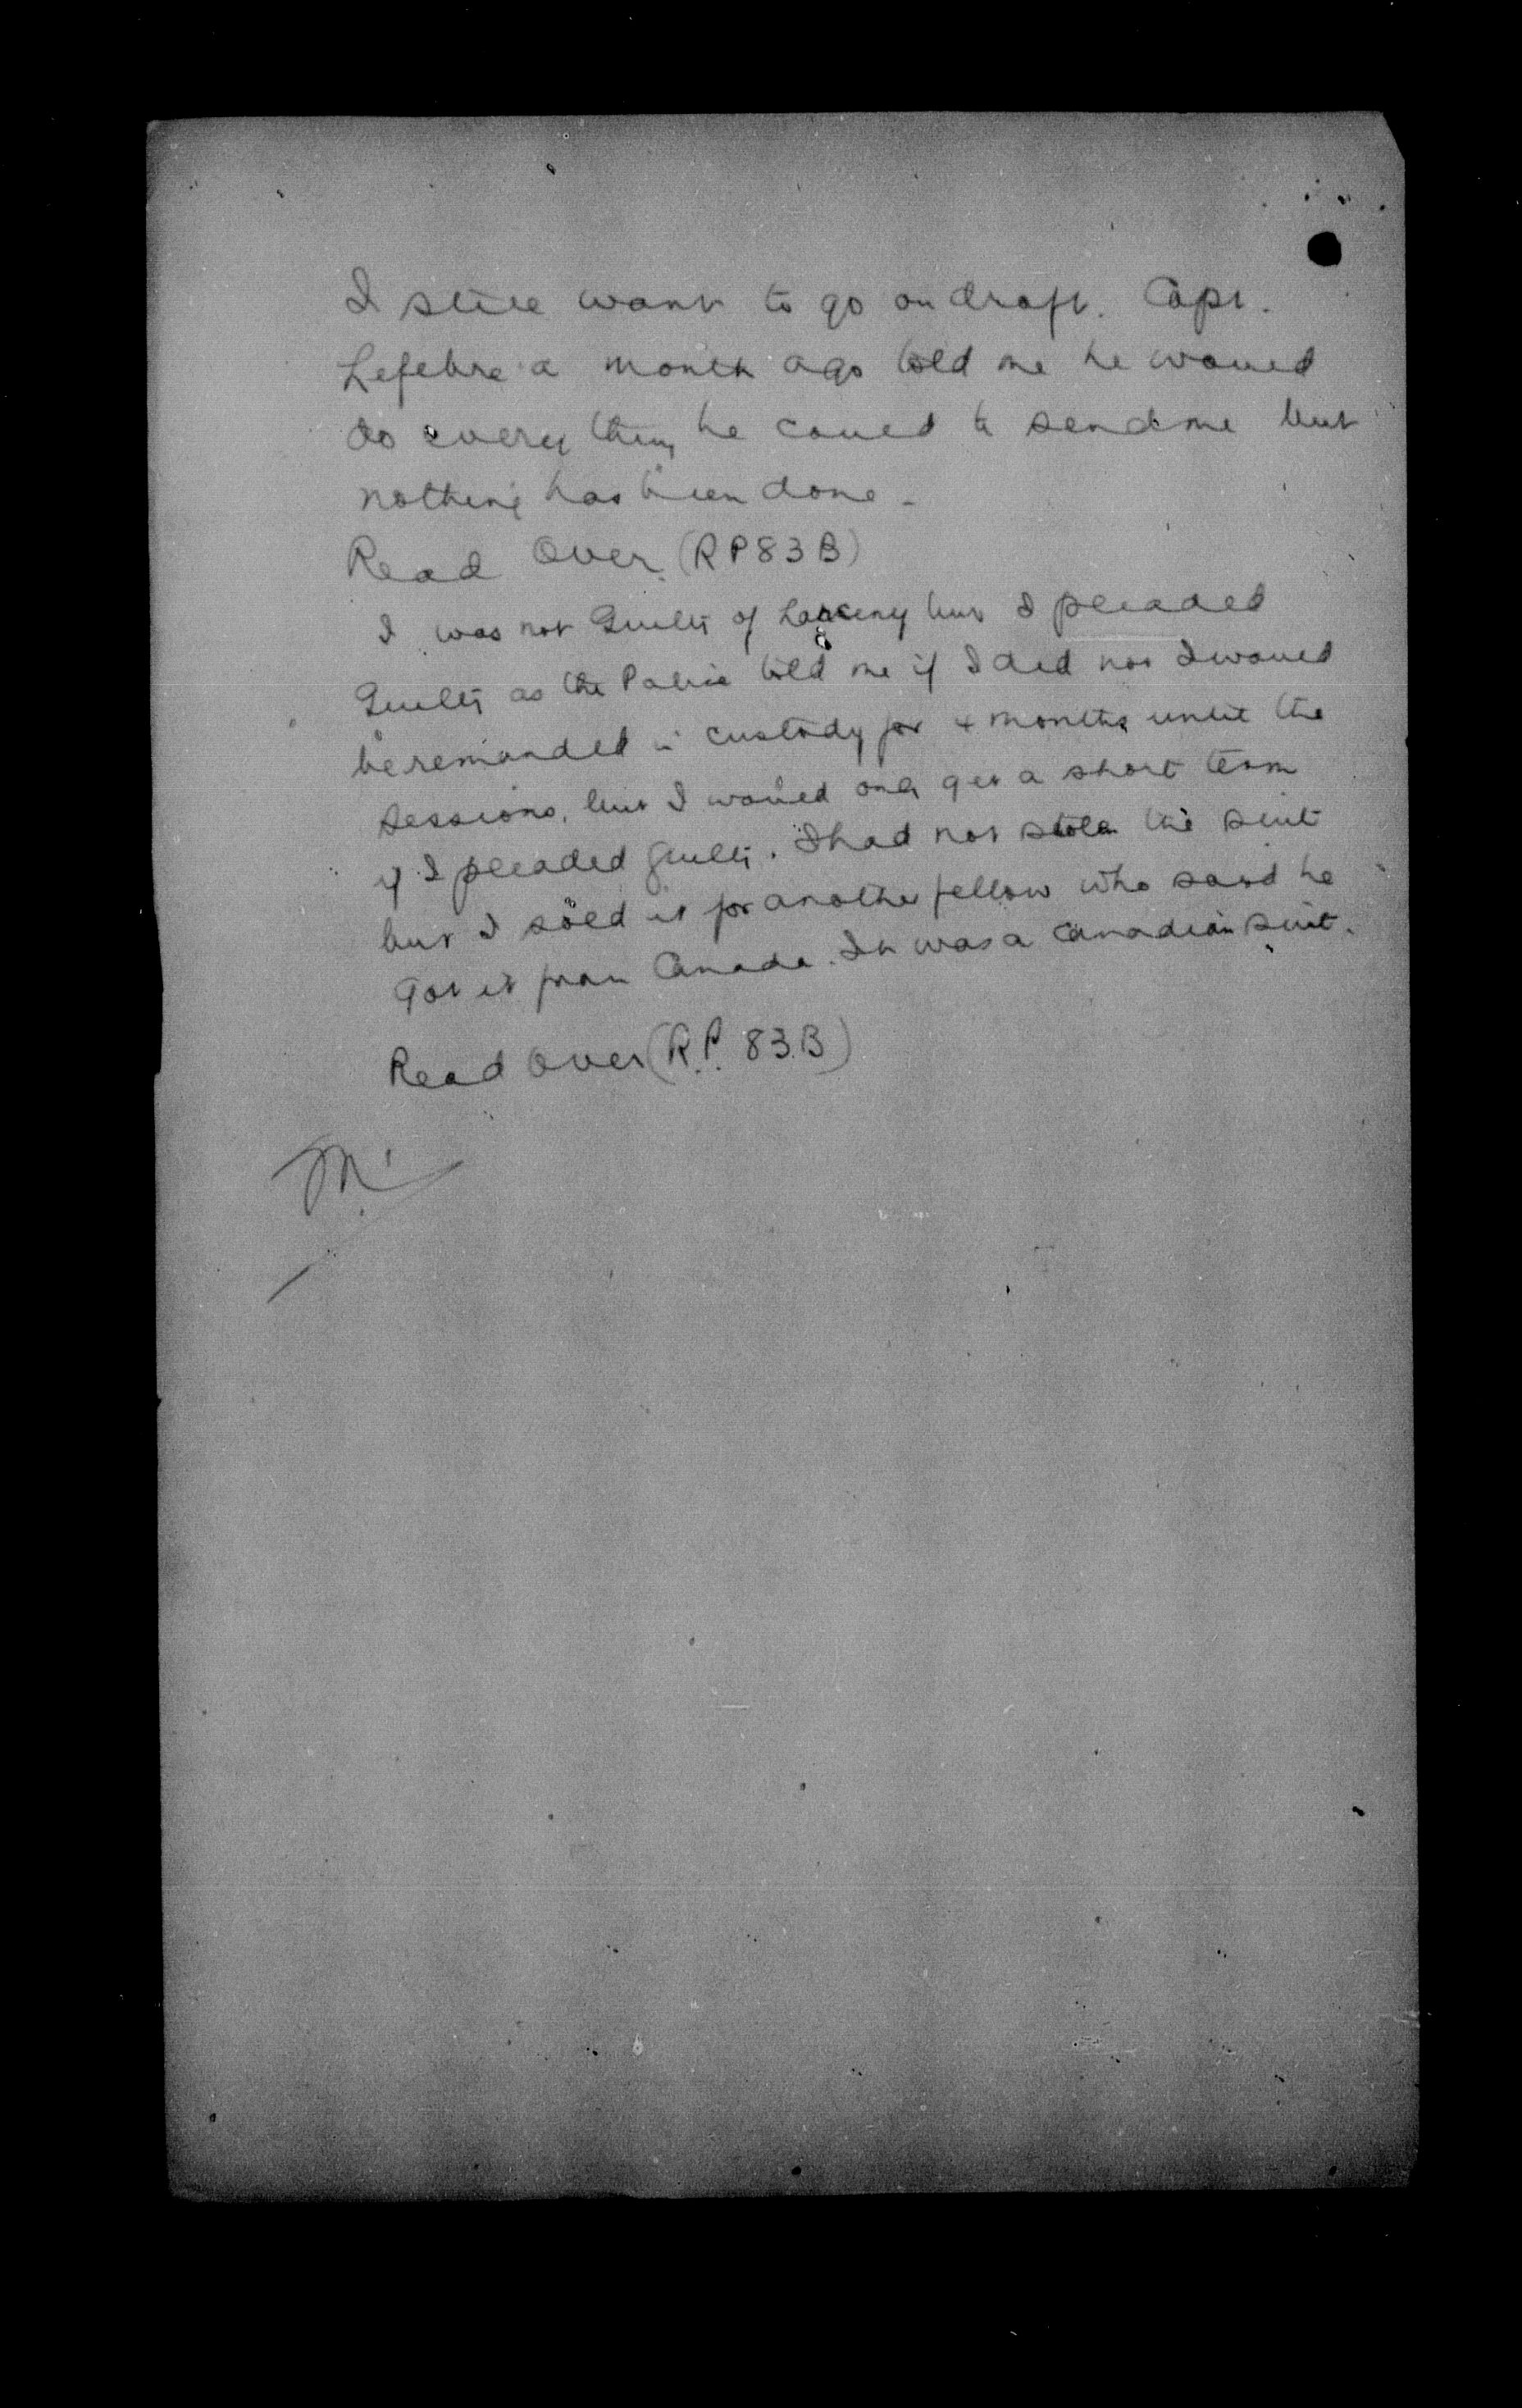 I still want to go on draft. Capt.
Lefebre a month ago told me he would
do every thing he could to send me but
nothing has been done -
Read Over (RP83B)
I was not Guilty of Larceny but I pleaded
Guilty as the Police told me if I did not I would
be remanded in custody for 4 months until the
Sessions, but I would only get a short term
if I pleaded Guilty. I had not stolen the suit
but I sold it for another fellow who said he
Got it from Canada. It was a Canadian suit.
Read Over (R.P. 83.B)